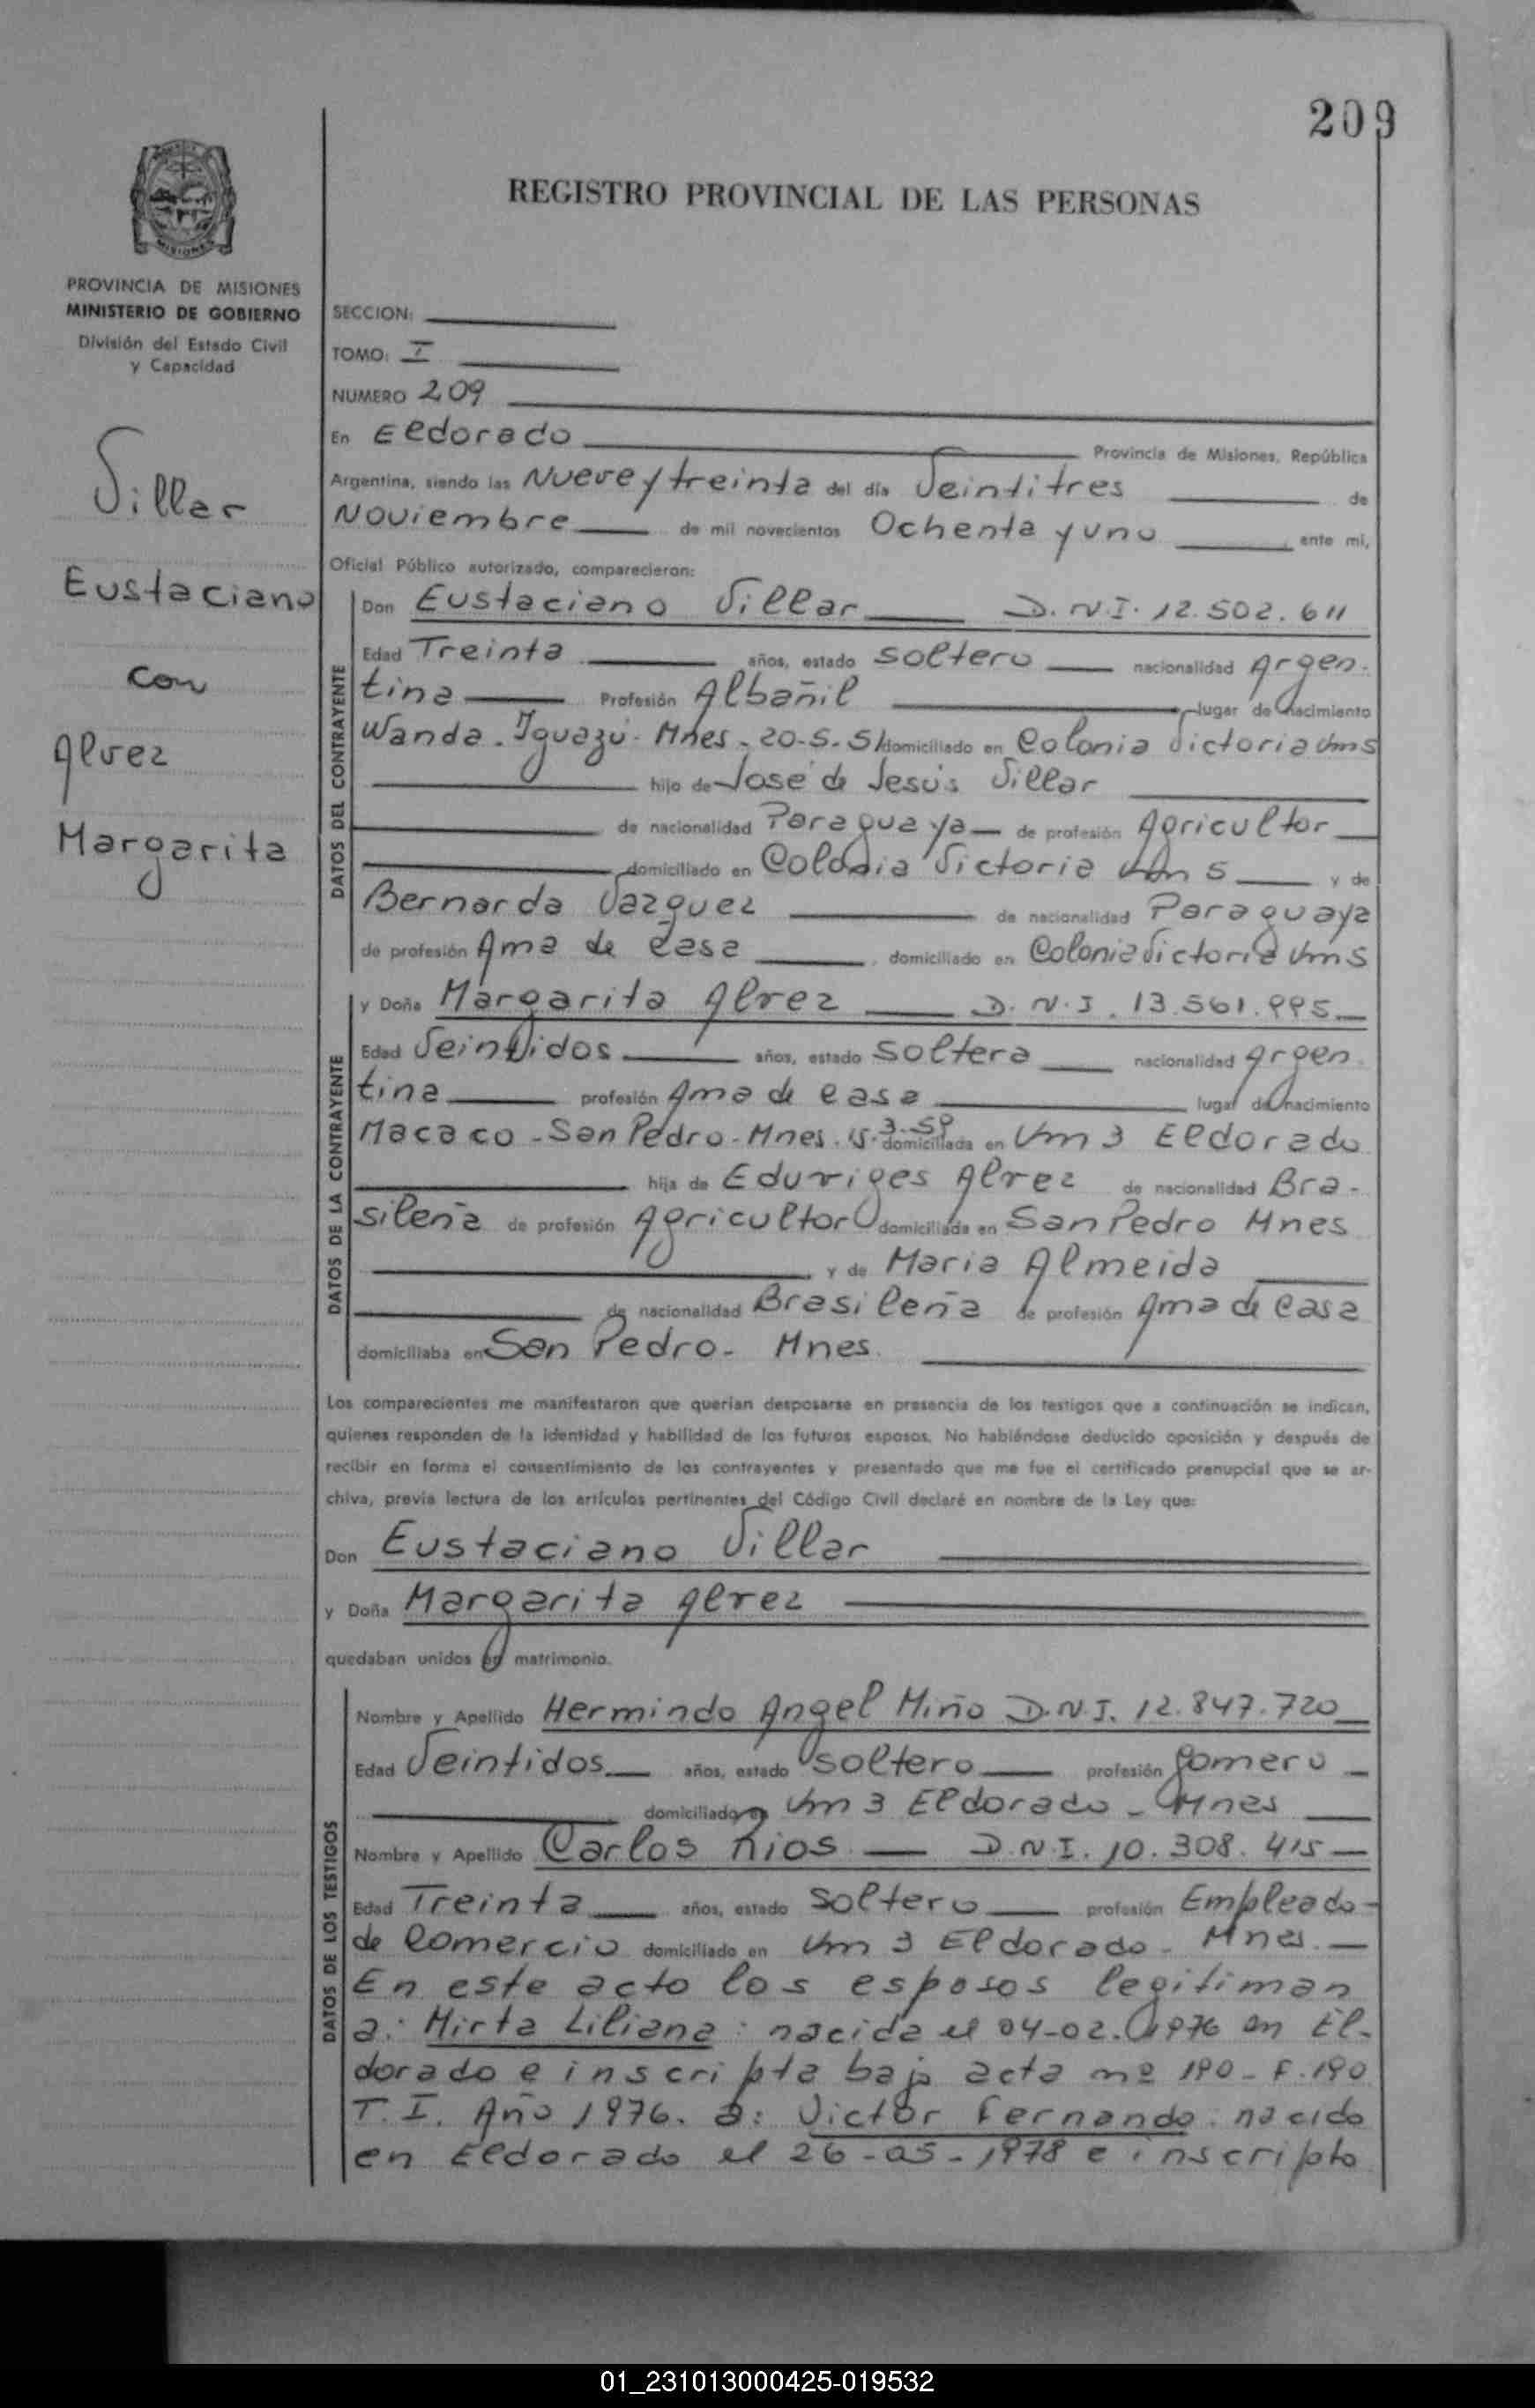 209
REGISTRO PROVINCIAL DE LAS PERSONAS
MISIONES
PROVINCIA DE MISIONES
MINISTERIO DE GOBIERNO
División del Estado Civil
y Capacidad
Villar
Eustaciano
con
Alvez
Margarita
SECCION:
TOMO: I
NUMERO 209
En Eldorado Provincia de Misiones, República
Argentina, siendo las Nueve y treinta del día Veintitres de
Noviembre de mil novecientos Ochenta y uno ante mi,
Oficial Público autorizado, comparecieron:
DATOS DEL CONTRAYENTE
Don Eustaciano Villar D.N.I. 12.502.611
Edad Treinta años, estado soltero nacionalidad Argen-
tina Profesión Albañil lugar de nacimiento
Wanda. Iguazú. Mnes. 20-5-51 domiciliado en Colonia Victoria Km 5
hijo de José de Jesús Villar
de nacionalidad Paraguaya de profesión Agricultor
domiciliado en Colonia Victoria Km 5 y de
Bernarda Vazquez de nacionalidad Paraguaya
de profesión Ama de Casa domiciliado en Colonia Victoria Km 5
DATOS DE LA CONTRAYENTE
y Doña Margarita Alvez D.N.I. 13.561.995
Edad Veintidos años, estado soltera nacionalidad Argen
tina profesión Ama de casa lugar de nacimiento
Macaco - San Pedro - Mnes. 15-3-59 domiciliada en Km 3 Eldorado
hija de Eduviges Alvez de nacionalidad Bra-
sileña de profesión Agricultor domiciliada en San Pedro Mnes
y de Maria Almeida
de nacionalidad Brasileña de profesión Ama de Casa
domiciliaba en San Pedro - Mnes.
Los comparecientes me manifestaron que querían desposarse en presencia de los testigos que a continuación se indican,
quienes responden de la identidad y habilidad de los futuros esposos. No habiéndose deducido oposición y después de
recibir en forma el consentimiento de los contrayentes y presentado que me fue el certificado prenupcial que se ar-
chiva, previa lectura de los artículos pertinentes del Código Civil declaré en nombre de la Ley que:
Don Eustaciano Villar
y Doña Margarita Alvez
quedaban unidos en matrimonio.
DATOS DE LOS TESTIGOS
Nombre y Apellido Hermindo Angel Miño D.N.I. 12.847.720
Edad Veintidos años, estado soltero profesión Gomero
domiciliado en Km 3 Eldorado - Mnes
Nombre y Apellido Carlos Rios D.N.I. 10.308.415
Edad Treinta años, estado soltero profesión Empleado
de Comercio domiciliado en Km 3 Eldorado - Mnes.
En este acto los esposos legitiman
a: Mirta Liliana: nacida el 04-02-1976 en El-
dorado e inscripta bajo acta nº 190 - F. 190
T. I. Año 1976. a: Victor Fernando: nacido
en Eldorado el 26-05-1978 e inscripto
01_231013000425-019532